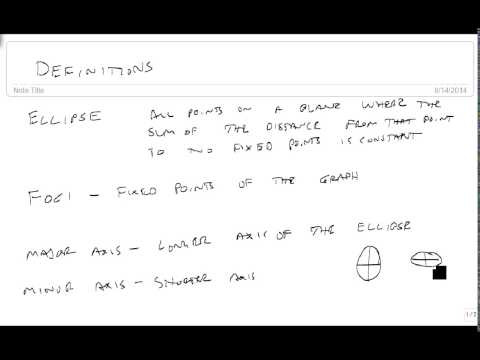 DEFINITIONS
Note Title
8/14/2014
ELLIPSE ALL POINTS ON A PLANE WHERE THE
SUM OF THE DISTANCE FROM THAT POINT
TO TWO FIXED POINTS IS CONSTANT
FOCI - FIXED POINTS OF THE GRAPH
MAJOR AXIS - LONGER AXIS OF THE ELLIPSE
MINOR AXIS - SHORTER AXIS